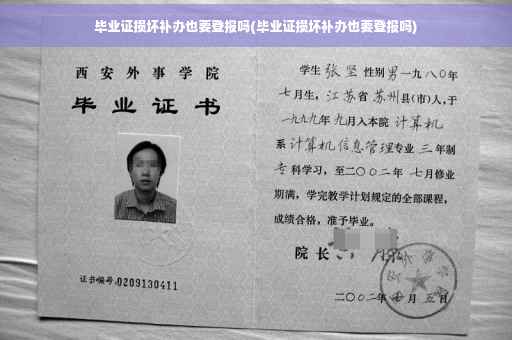 毕业证损坏补办也要登报吗(毕业证损坏补办也要登报吗)
西安外事学院
毕业证书
证书编号:0209130411
学生张坚性别男一九八〇年
七月生，江苏省苏州县(市)人，于
一九九九年九月入本院计算机
系计算机信息管理专业三年制
专科学习，至二〇〇二年七月修业
期满，学完教学计划规定的全部课程，
成绩合格，准予毕业。
院长
二〇〇二年 月五日